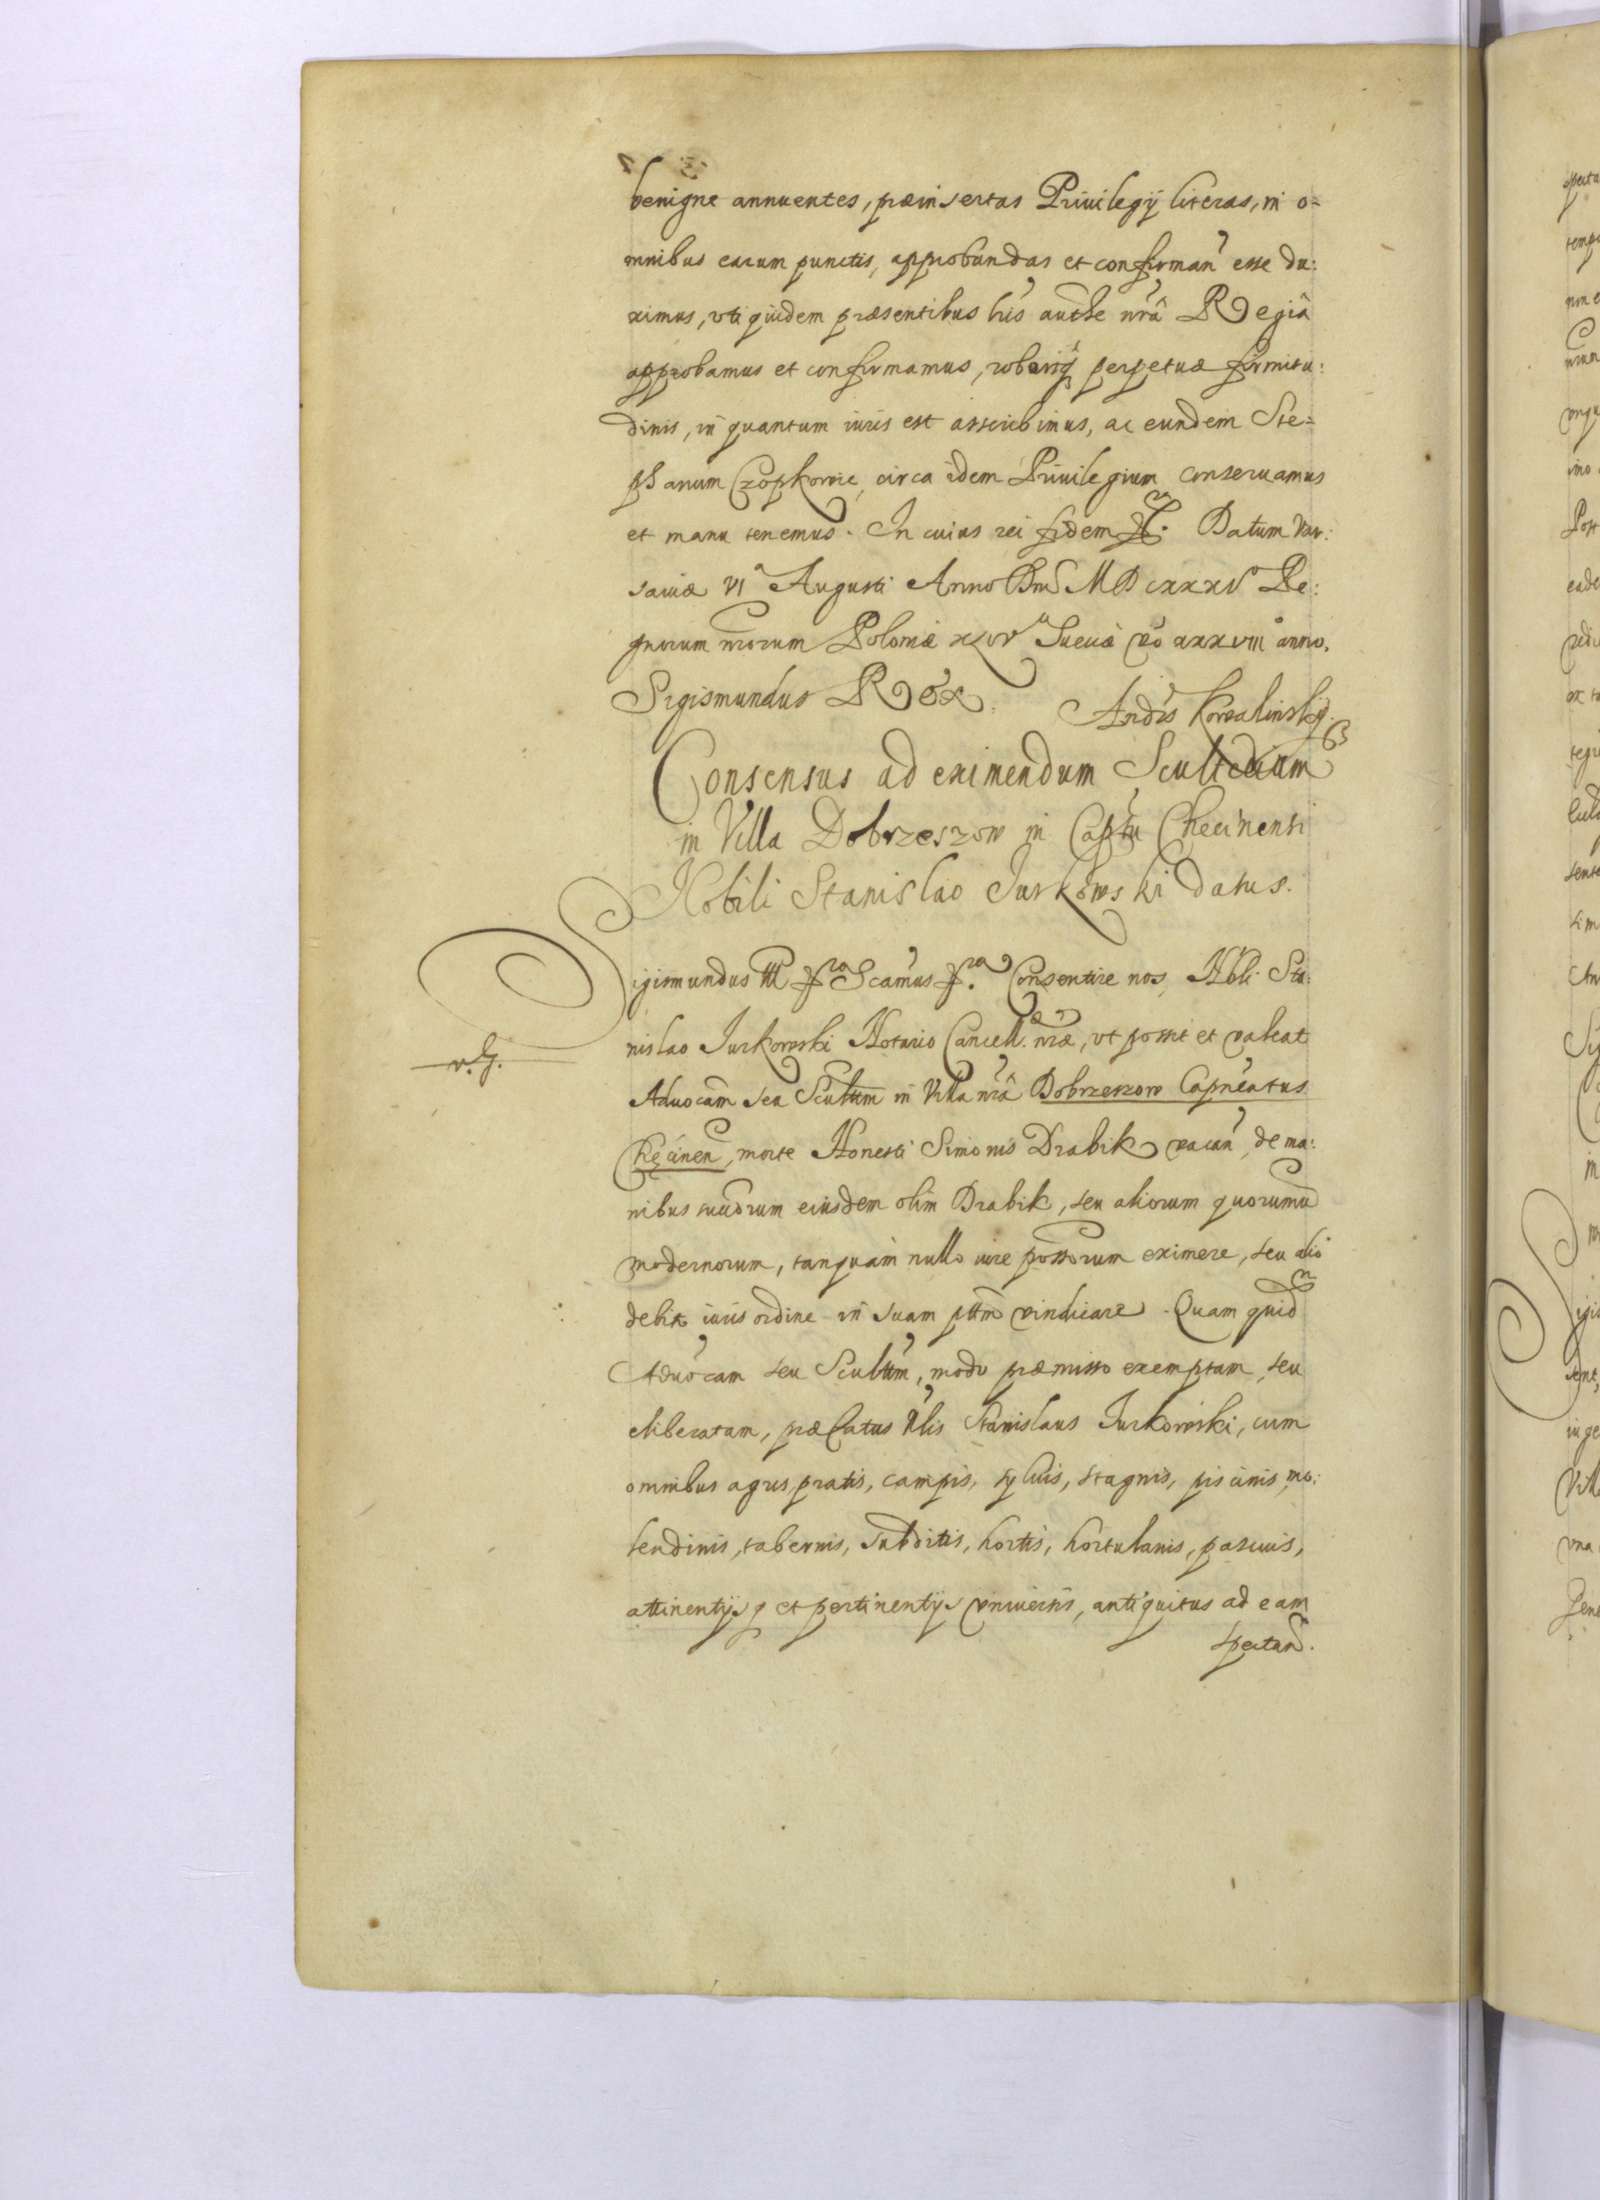 benigne annuentes, præinsertas Priuilegÿ literas, in o=
mnibus earum punctis, approbandas et confirman esse du:
ximus, vti quidem præsentibus his authe nrâ Regiâ
approbamus et confirmamus, roburq perpetuæ firmitu:
dinis, in quantum iuris est asscribimus, ac eundem Ste=
phanum Czopkowic, circa idem Priuilegium conseruamus
et manu tenemus. In cuius rei fidem Datum Var:
sauiæ VI Augusti Anno Dni MDCXXXV Re:
gnorum nrorum Poloniæ Sueciæ vo XXXVIII anno.
Sigismundus Rex. Andrs Kowalinskÿ.
Consensus ad eximendum Scultetiam
in Villa Dobrzeszow in Captu Checinensi
Nobili Stanislao Jurkowski datus.
Sigismundus III Scamus Consentire nos, Nbli Sta:
nislao Jurkowski Notario Cancell. nræ, vt possit et valeat
v. G.
Aduocam seu Scultm in Villa nrâ Dobrzeszow Capneatus
Chęcinen, morte Honesti Simonis Drabik vacan, de ma:
nibus succrum eiusdem olim Drabik, seu aliorum quorumu
modernorum, tanquam nullo iure possorum eximere, seu alio
debito iuris ordine in suam pttm vindicare. Quam quid
Aduocam seu Scultm, modo præmisso exemptam, seu
eliberatam, præfatus Nlis Stanislaus Jurkowski, cum
omnibus agris, pratis, campis, syluis, stagnis, piscinis, mo:
lendinis, tabernis, subditis, hortis, hortulanis, pascuis,
attinentÿsq et pertinentÿs vniuersis, antiquitus ad eam
spectan.